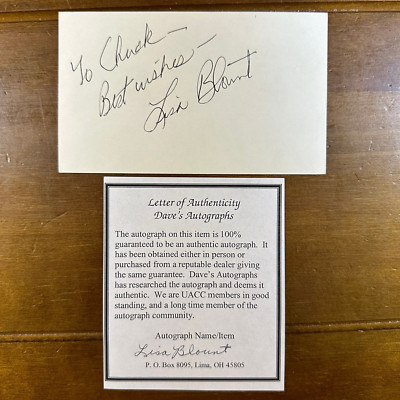 To Chuck —
Best wishes —
Lisa Blount
Letter of Authenticity
Dave's Autographs
The autograph on this item is 100%
guaranteed to be an authentic autograph. It
has been obtained either in person or
purchased from a reputable dealer giving
the same guarantee. Dave's Autographs
has researched the autograph and deems it
authentic. We are UACC members in good
standing, and a long time member of the
autograph community.
Autograph Name/Item
Lisa Blount
P. O. Box 8095, Lima, OH 45805